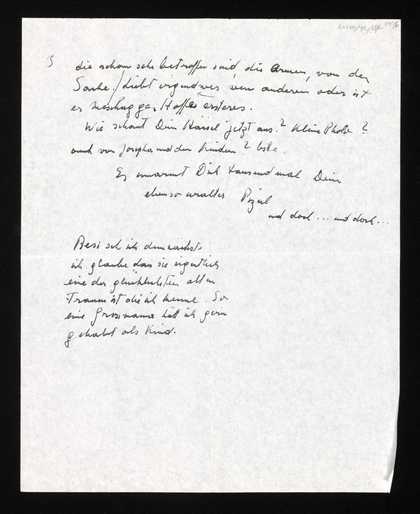 5 die schon sehr betroffen sind, die Armen, von der
Sache. / liebt irgendwer wen anderen oder ist
er meschugge. Hoffe ersteres.
Wie schaut Dein Häusel jetzt aus? Kleine Photo?
und von Josepha und den Kindern? bitte.
Es umarmt Dich tausend mal Dein
ebenso uralter
und doch ... und doch ...
Resi seh ich demnächst
ich glaube dass sie eigentlich
eine der glücklichsten alten
Frauen ist die ich kenne. So
eine Grossmama hätt ich gern
gehabt als Kind.